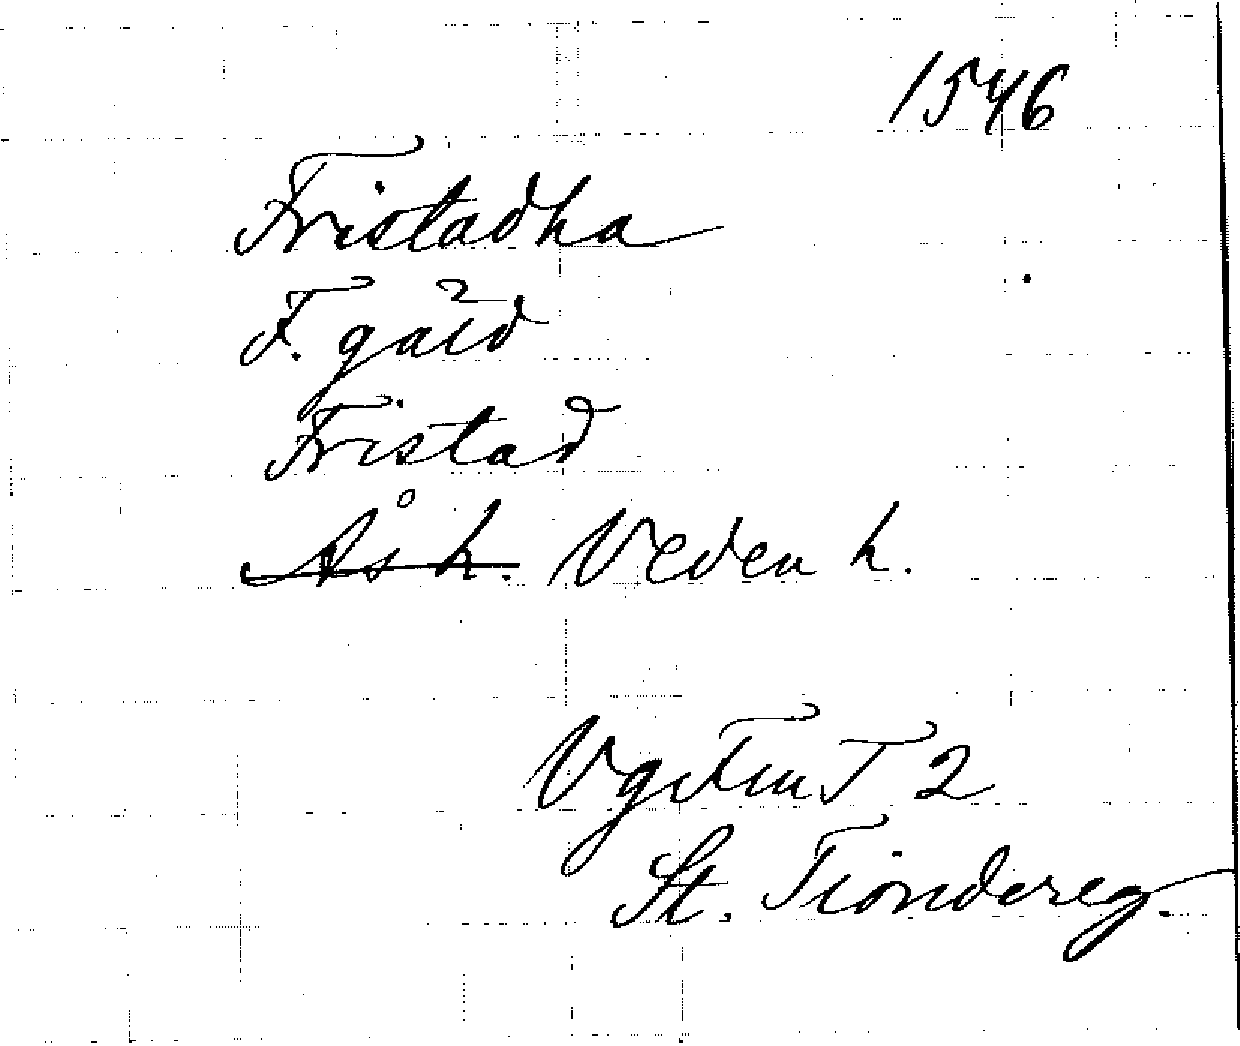 1546
Fristadha
F. gård
Fristad
Ås h. Veden h.
Vg Fru T 2
St. Tiondereg.